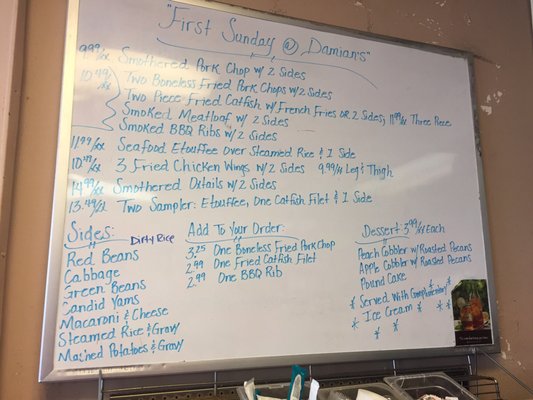 "First Sunday @ Damian's"
9.99/xx Smothered Pork Chop w/ 2 Sides
10.49/xx Two Boneless Fried Pork Chops w/ 2 Sides
Two Piece Fried Catfish w/ French Fries or 2 Sides; 11.99/xx Three Piece
Smoked Meatloaf w/ 2 Sides
Smoked BBQ Ribs w/ 2 Sides
11.99/xx Seafood Etouffee Over Steamed Rice & 1 Side
10.49/xx 3 Fried Chicken Wings w/ 2 Sides 9.99/xx Leg & Thigh
14.99/xx Smothered Oxtails w/ 2 Sides
13.49/xx Two Sampler: Etouffee, One Catfish Filet & 1 Side
Sides:
Dirty Rice
Red Beans
Cabbage
Green Beans
Candid Yams
Macaroni & Cheese
Steamed Rice & Gravy
Mashed Potatoes & Gravy
Add To Your Order:
3.25 One Boneless Fried Pork Chop
2.99 One Fried Catfish Filet
2.99 One BBQ Rib
Dessert 3.99/xx Each
Peach Cobbler w/ Roasted Pecans
Apple Cobbler w/ Roasted Pecans
Pound Cake
* Served With Complimentary *
* Ice Cream *